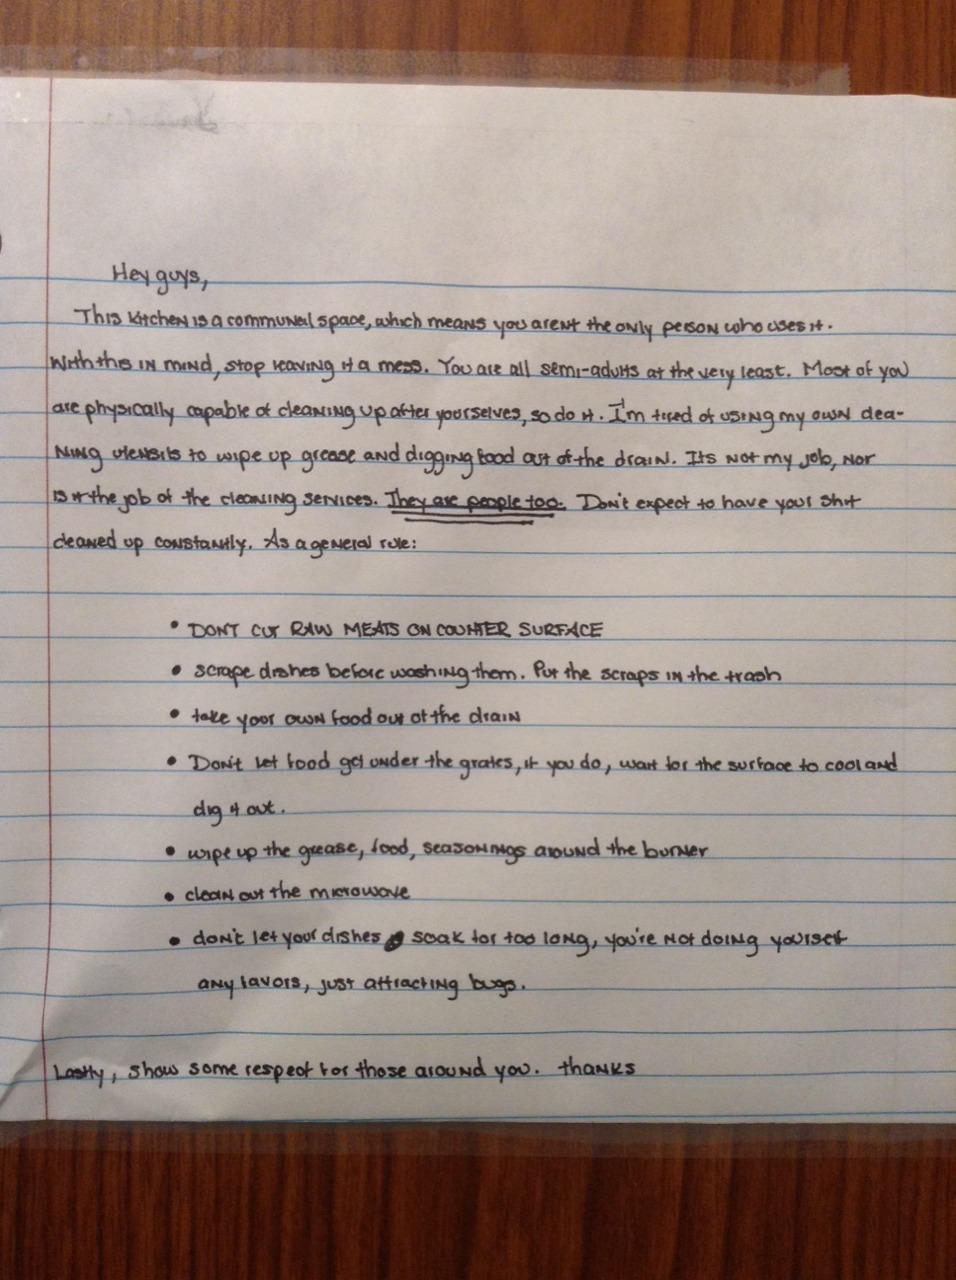 Hey guys,
This kitchen is a communal space, which means you arent the only person who uses it.
With this in mind, stop leaving it a mess. You are all semi-adults at the very least. Most of you
are physically capable of cleaning up after yourselves, so do it. I'm tired of using my own clea-
ning utensils to wipe up grease and digging food out of the drain. Its not my job, nor
is it the job of the cleaning services. They are people too. Don't expect to have your shit
cleaned up constantly. As a general rule:
• DON'T CUT RAW MEATS ON COUNTER SURFACE
• scrape dishes before washing them. Put the scraps in the trash
• take your own food out of the drain
• Don't let food get under the grates, if you do, wait for the surface to cool and
dig it out.
• wipe up the grease, food, seasonings around the burner
• clean out the microwave
• don't let your dishes soak for too long, you're not doing yourself
any favors, just attracting bugs.
Lastly, show some respect for those around you. thanks